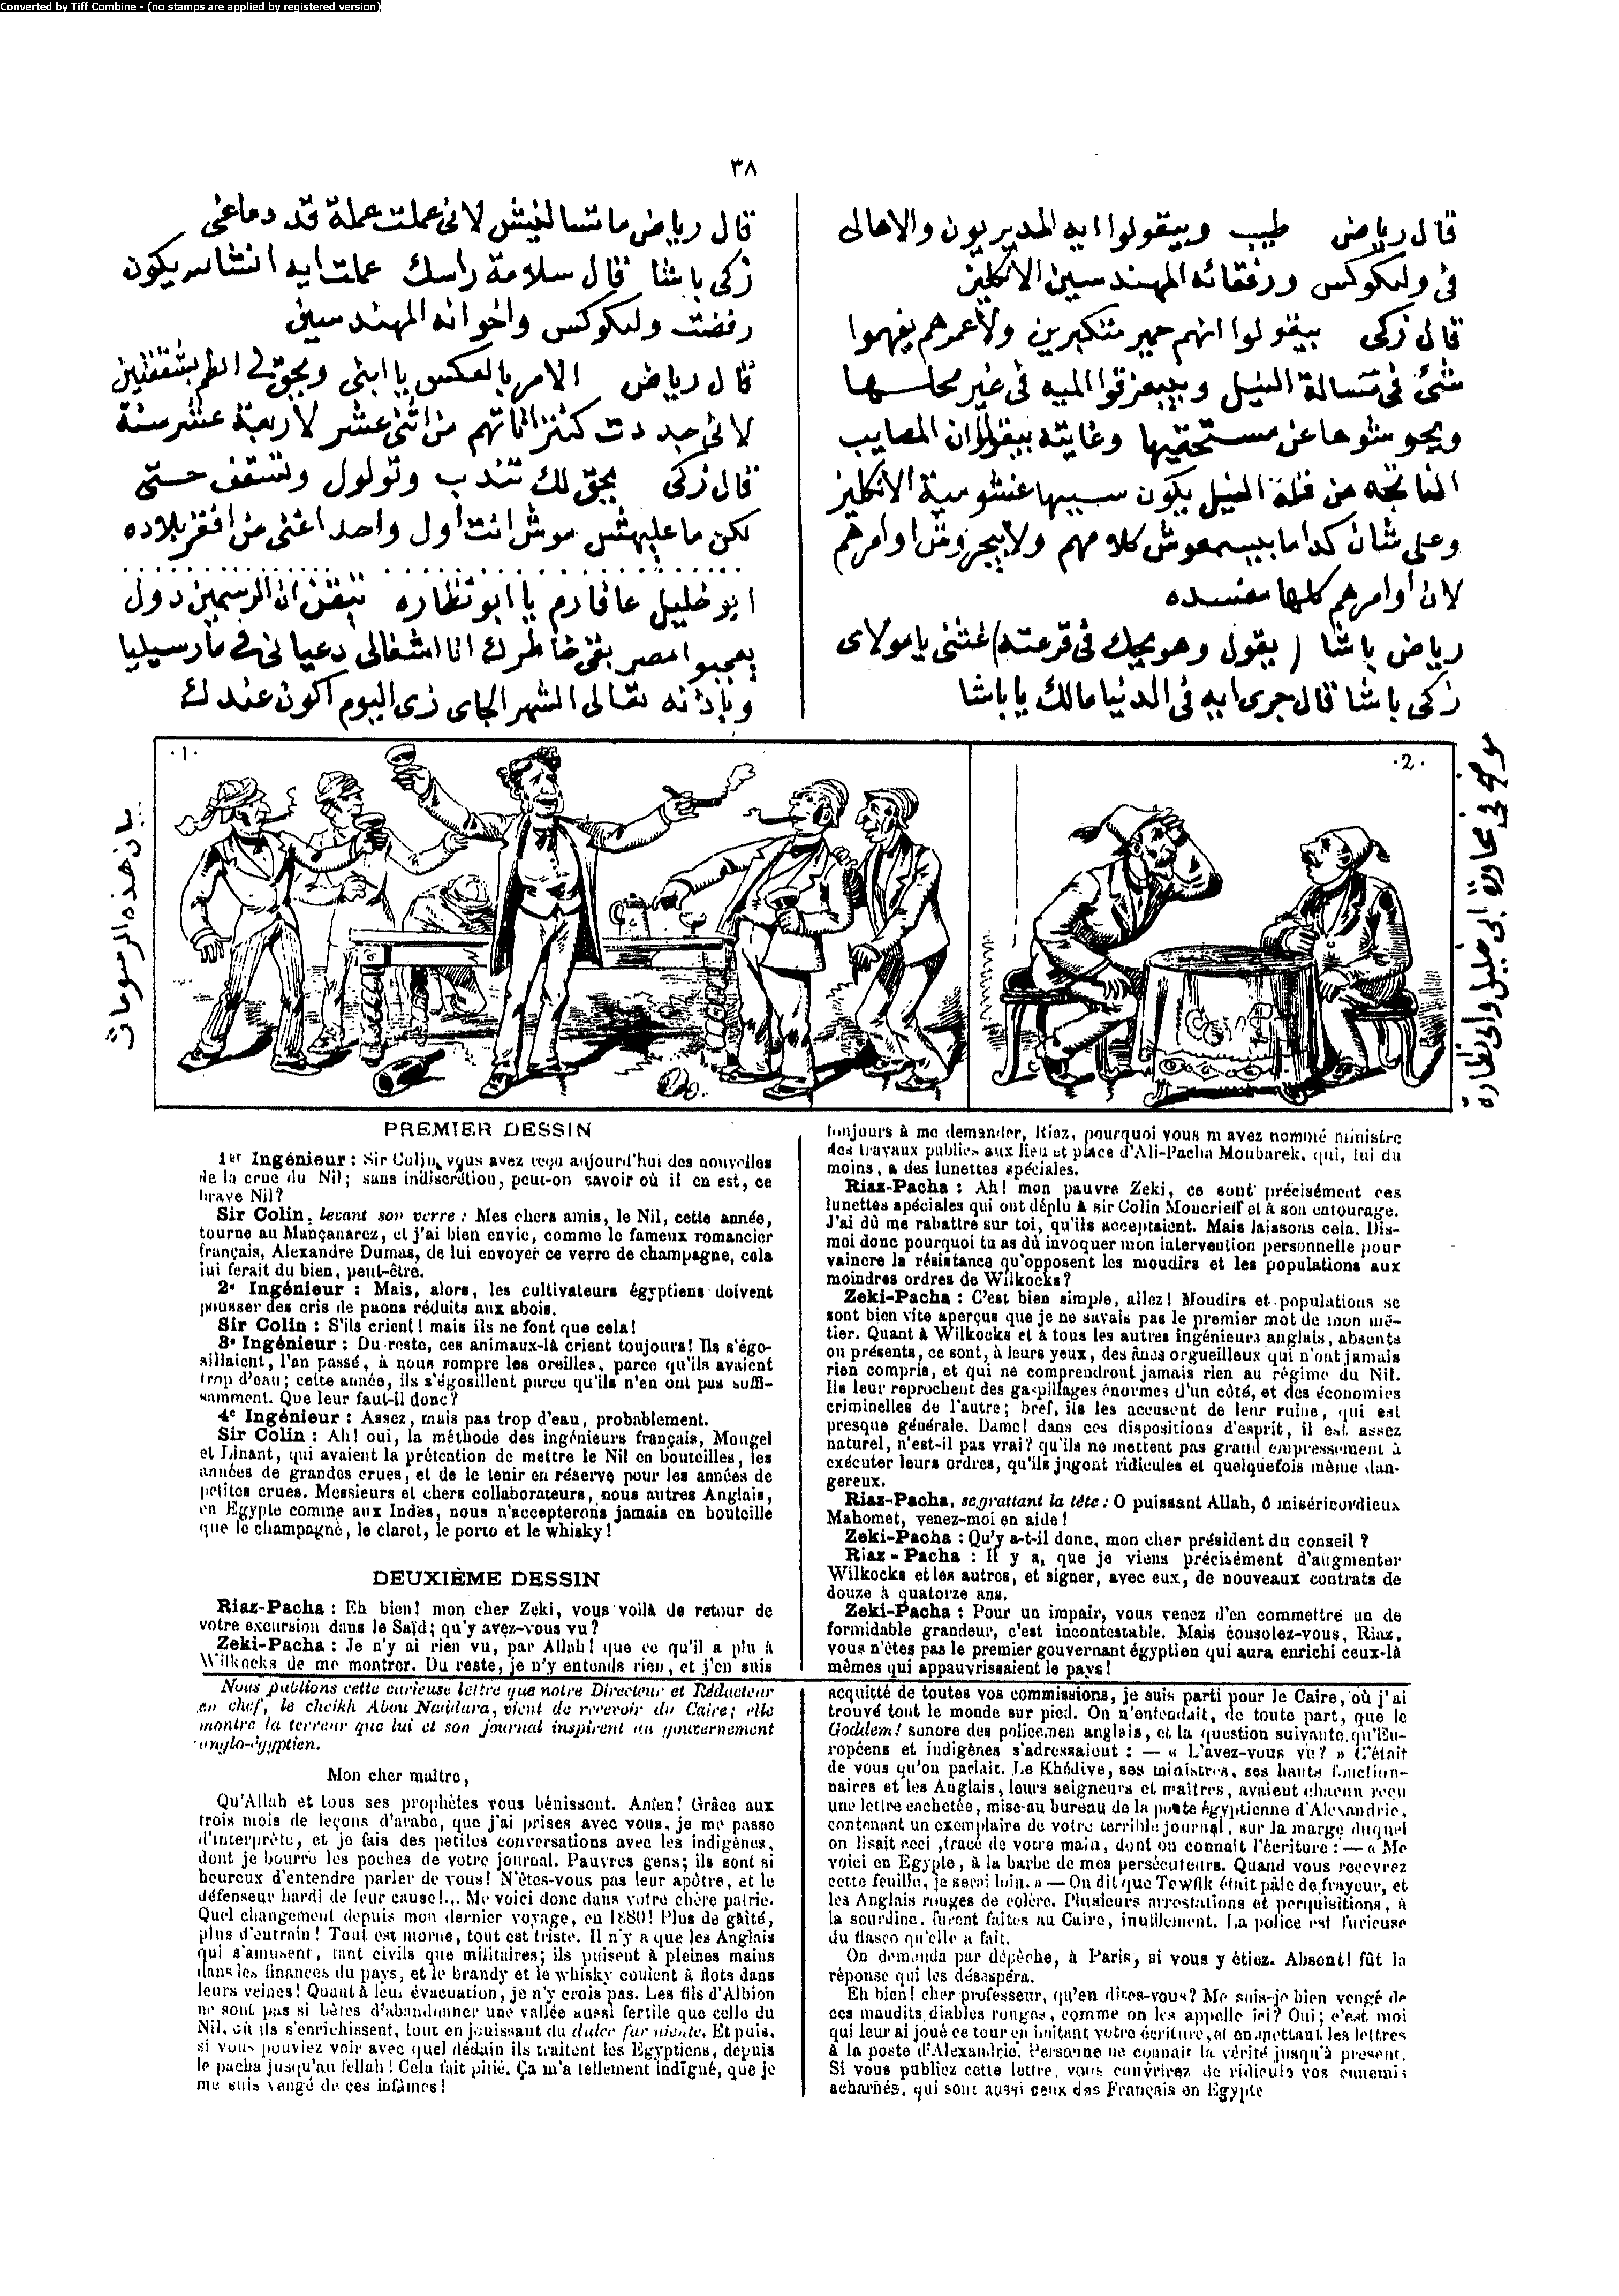 Converted by Tiff Combine - (no stamps are applied by registered version)
٣٨
قال رياض طيب وبيقولوا ايه المديريون والاهالى
فى ولكوكس ورفقائه المهندسين الانكليز
قال زكى بيقولوا انهم حمير متكبرين ولا عمرهم يفهموا
شئ فى مسالة النيل وبيبعزقوا الميه فى غير محلسها
ويحوشوها عن مستحقيها وغايته بيقولوا ان المصايب
الناتجه من قلة النيل يكون سببها غشومية الانكليز
وعلى شان كدا ما بيسمعوش كلامهم ولا بيجروش اوامرهم
لان اوامرهم كلها مفسده
رياض باشا (يقول وهو يحك فى قرعته) غثنى يا مولاى
زكى باشا قال جرى ايه فى الدنيا مالك يا باشا
قال رياض ما تسالنيش لانى عملت عملة قد دماغى
زكى باشا قال سلامة راسك عملت ايه انشالله يكون
رفضت ولكوكس واخوانه المهندسين
قال رياض الامر بالعكس يا ابنى ويحق لى الطم بشقفتين
لانى جددت كنتراتاتهم من اثنى عشر لاربعة عشر سنة
قال زكى يحق لك تندب وتولول وتسقف حتى
لكن ما عليهش موش انت اول واحد اغنى من افقر بلاده
ابو خليل عافارم يا ابو نظاره نبقى ان الرسمين دول
يعجبوا مصر بقى خاطرك انا اشغالى دعيانى فى مارسيليا
وباذنه تعالى الشهر الجاى زى اليوم اكون عندك
بيان هذه الرسومات
موضح فى محاورة ابى خليل وابى نظارة
.1.
.2.
PREMIER DESSIN
1er Ingénieur : Sir Colin, vous avez reçu aujourd'hui des nouvelles
de la crue du Nil ; sans indiscrétion, peut-on savoir où il en est, ce
brave Nil ?
Sir Colin, levant son verre : Mes chers amis, le Nil, cette année,
tourne au Mançanarez, et j'ai bien envie, comme le fameux romancier
français, Alexandre Dumas, de lui envoyer ce verre de champagne, cela
lui ferait du bien, peut-être.
2e Ingénieur : Mais, alors, les cultivateurs égyptiens doivent
pousser des cris de paons réduits aux abois.
Sir Colin : S'ils crient ! mais ils ne font que cela !
3e Ingénieur : Du reste, ces animaux-là crient toujours ! Ils s'égo-
sillaient, l'an passé, à nous rompre les oreilles, parce qu'ils avaient
trop d'eau ; cette année, ils s'égosillent parce qu'ils n'en ont pas suffi-
samment. Que leur faut-il donc ?
4e Ingénieur : Assez, mais pas trop d'eau, probablement.
Sir Colin : Ah ! oui, la méthode des ingénieurs français, Mougel
et Linant, qui avaient la prétention de mettre le Nil en bouteilles, les
années de grandes crues, et de le tenir en réserve pour les années de
petites crues. Messieurs et chers collaborateurs, nous autres Anglais,
en Egypte comme aux Indes, nous n'accepterons jamais en bouteille
que le champagne, le claret, le porto et le whisky !
DEUXIÈME DESSIN
Riaz-Pacha : Eh bien ! mon cher Zeki, vous voilà de retour de
votre excursion dans le Saïd ; qu'y avez-vous vu ?
Zeki-Pacha : Je n'y ai rien vu, par Allah ! que ce qu'il a plu à
Wilkocks de me montrer. Du reste, je n'y entends rien, et j'en suis
toujours à me demander, Riaz, pourquoi vous m'avez nommé ministre
des travaux publics aux lieu et place d'Ali-Pacha Moubarek, qui, lui du
moins, a des lunettes spéciales.
Riaz-Pacha : Ah ! mon pauvre Zeki, ce sont précisément ces
lunettes spéciales qui ont déplu à sir Colin Moucrieff et à son entourage.
J'ai dû me rabattre sur toi, qu'ils acceptaient. Mais laissons cela. Dis-
moi donc pourquoi tu as dû invoquer mon intervention personnelle pour
vaincre la résistance qu'opposent les moudirs et les populations aux
moindres ordres de Wilkocks ?
Zeki-Pacha : C'est bien simple, allez ! Moudirs et populations se
sont bien vite aperçus que je ne savais pas le premier mot de mon mé-
tier. Quant à Wilkocks et à tous les autres ingénieurs anglais, absents
ou présents, ce sont, à leurs yeux, des ânes orgueilleux qui n'ont jamais
rien compris, et qui ne comprendront jamais rien au régime du Nil.
Ils leur reprochent des gaspillages énormes d'un côté, et des économies
criminelles de l'autre ; bref, ils les accusent de leur ruine, qui est
presque générale. Dame ! dans ces dispositions d'esprit, il est assez
naturel, n'est-il pas vrai ? qu'ils ne mettent pas grand empressement à
exécuter leurs ordres, qu'ils jugent ridicules et quelquefois même dan-
gereux.
Riaz-Pacha, se grattant la tête : O puissant Allah, ô miséricordieux
Mahomet, venez-moi en aide !
Zeki-Pacha : Qu'y a-t-il donc, mon cher président du conseil ?
Riaz-Pacha : Il y a, que je viens précisément d'augmenter
Wilkocks et les autres, et signer, avec eux, de nouveaux contrats de
douze à quatorze ans.
Zeki-Pacha : Pour un impair, vous venez d'en commettre un de
formidable grandeur, c'est incontestable. Mais consolez-vous, Riaz,
vous n'êtes pas le premier gouvernant égyptien qui aura enrichi ceux-là
mêmes qui appauvrissaient le pays !
Nous publions cette curieuse lettre que notre Directeur et Rédacteur
en chef, le cheikh Abou Naddara, vient de recevoir du Caire ; elle
montre la terreur que lui et son journal inspirent au gouvernement
anglo-égyptien.
Mon cher maître,
Qu'Allah et tous ses prophètes vous bénissent. Amen ! Grâce aux
trois mois de leçons d'arabe, que j'ai prises avec vous, je me passe
d'interprète, et je fais des petites conversations avec les indigènes,
dont je bourre les poches de votre journal. Pauvres gens ; ils sont si
heureux d'entendre parler de vous ! N'êtes-vous pas leur apôtre, et le
défenseur hardi de leur cause !... Me voici donc dans votre chère patrie.
Quel changement depuis mon dernier voyage, en 1880 ! Plus de gaîté,
plus d'entrain ! Tout est morne, tout est triste. Il n'y a que les Anglais
qui s'amusent, tant civils que militaires ; ils puisent à pleines mains
dans les finances du pays, et le brandy et le whisky coulent à flots dans
leurs veines ! Quant à leur évacuation, je n'y crois pas. Les fils d'Albion
ne sont pas si bêtes d'abandonner une vallée aussi fertile que celle du
Nil, où ils s'enrichissent, tout en jouissant du dulce far niente. Et puis,
si vous pouviez voir avec quel dédain ils traitent les Egyptiens, depuis
le pacha jusqu'au fellah ! Cela fait pitié. Ça m'a tellement indigné, que je
me suis vengé de ces infâmes !
acquitté de toutes vos commissions, je suis parti pour le Caire, où j'ai
trouvé tout le monde sur pied. On n'entendait, de toute part, que le
Goddem ! sonore des policemen anglais, et la question suivante qu'Eu-
ropéens et indigènes s'adressaient : — « L'avez-vous vu ? » C'était
de vous qu'on parlait. Le Khédive, ses ministres, ses hauts fonction-
naires et les Anglais, leurs seigneurs et maîtres, avaient chacun reçu
une lettre cachetée, mise au bureau de la poste égyptienne d'Alexandrie,
contenant un exemplaire de votre terrible journal, sur la marge duquel
on lisait ceci, tracé de votre main, dont on connaît l'écriture : — « Me
voici en Egypte, à la barbe de mes persécuteurs. Quand vous recevrez
cette feuille, je serai loin. » — On dit que Tewfik était pâle de frayeur, et
les Anglais rouges de colère. Plusieurs arrestations et perquisitions, à
la sourdine, furent faites au Caire, inutilement. La police est furieuse
du fiasco qu'elle a fait.
On demanda par dépêche, à Paris, si vous y étiez. Absent ! fût la
réponse qui les désespéra.
Eh bien ! cher professeur, qu'en dites-vous ? Me suis-je bien vengé de
ces maudits diables rouges, comme on les appelle ici ? Oui ; c'est moi
qui leur ai joué ce tour en imitant votre écriture, et en mettant les lettres
à la poste d'Alexandrie. Personne ne connait la vérité jusqu'à présent.
Si vous publiez cette lettre, vous couvrirez de ridicule vos ennemis
acharnés, qui sont aussi ceux des Français en Egypte